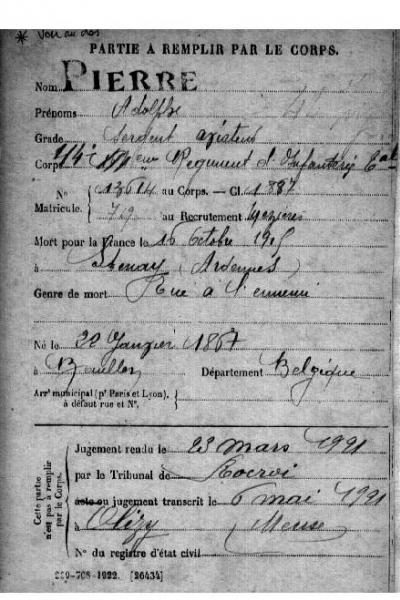 * Voir au dos
PARTIE À REMPLIR PAR LE CORPS.
Nom PIERRE
Prénoms Adolphe
Grade Sergent aviateur
Corps 14e Régiment d'Infanterie
N° Matricule. 13614 au Corps. — Cl. 1887
729 au Recrutement Mézières
Mort pour la France le 16 Octobre 1915
à Stenay (Ardennes)
Genre de mort Tué à l'ennemi
Né le 22 Janvier 1867
à Bouillon Département Belgique
Arrt municipal (pr Paris et Lyon), à défaut rue et N°.
Cette partie n'est pas à remplir par le Corps.
Jugement rendu le 23 mars 1921
par le Tribunal de Rocroi
acte ou jugement transcrit le 6 mai 1921
à Olizy (Meuse)
N° du registre d'état civil
-708-1922. [26434]